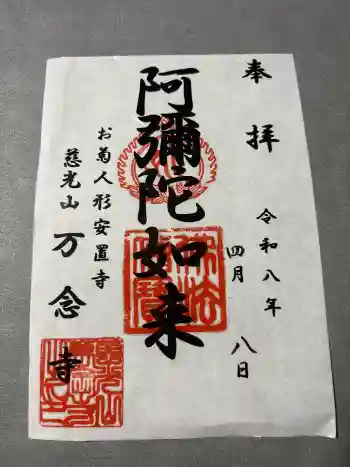 奉拝
令和八年
四月八日
阿彌陀如来
お菊人形安置寺
慈光山万念寺